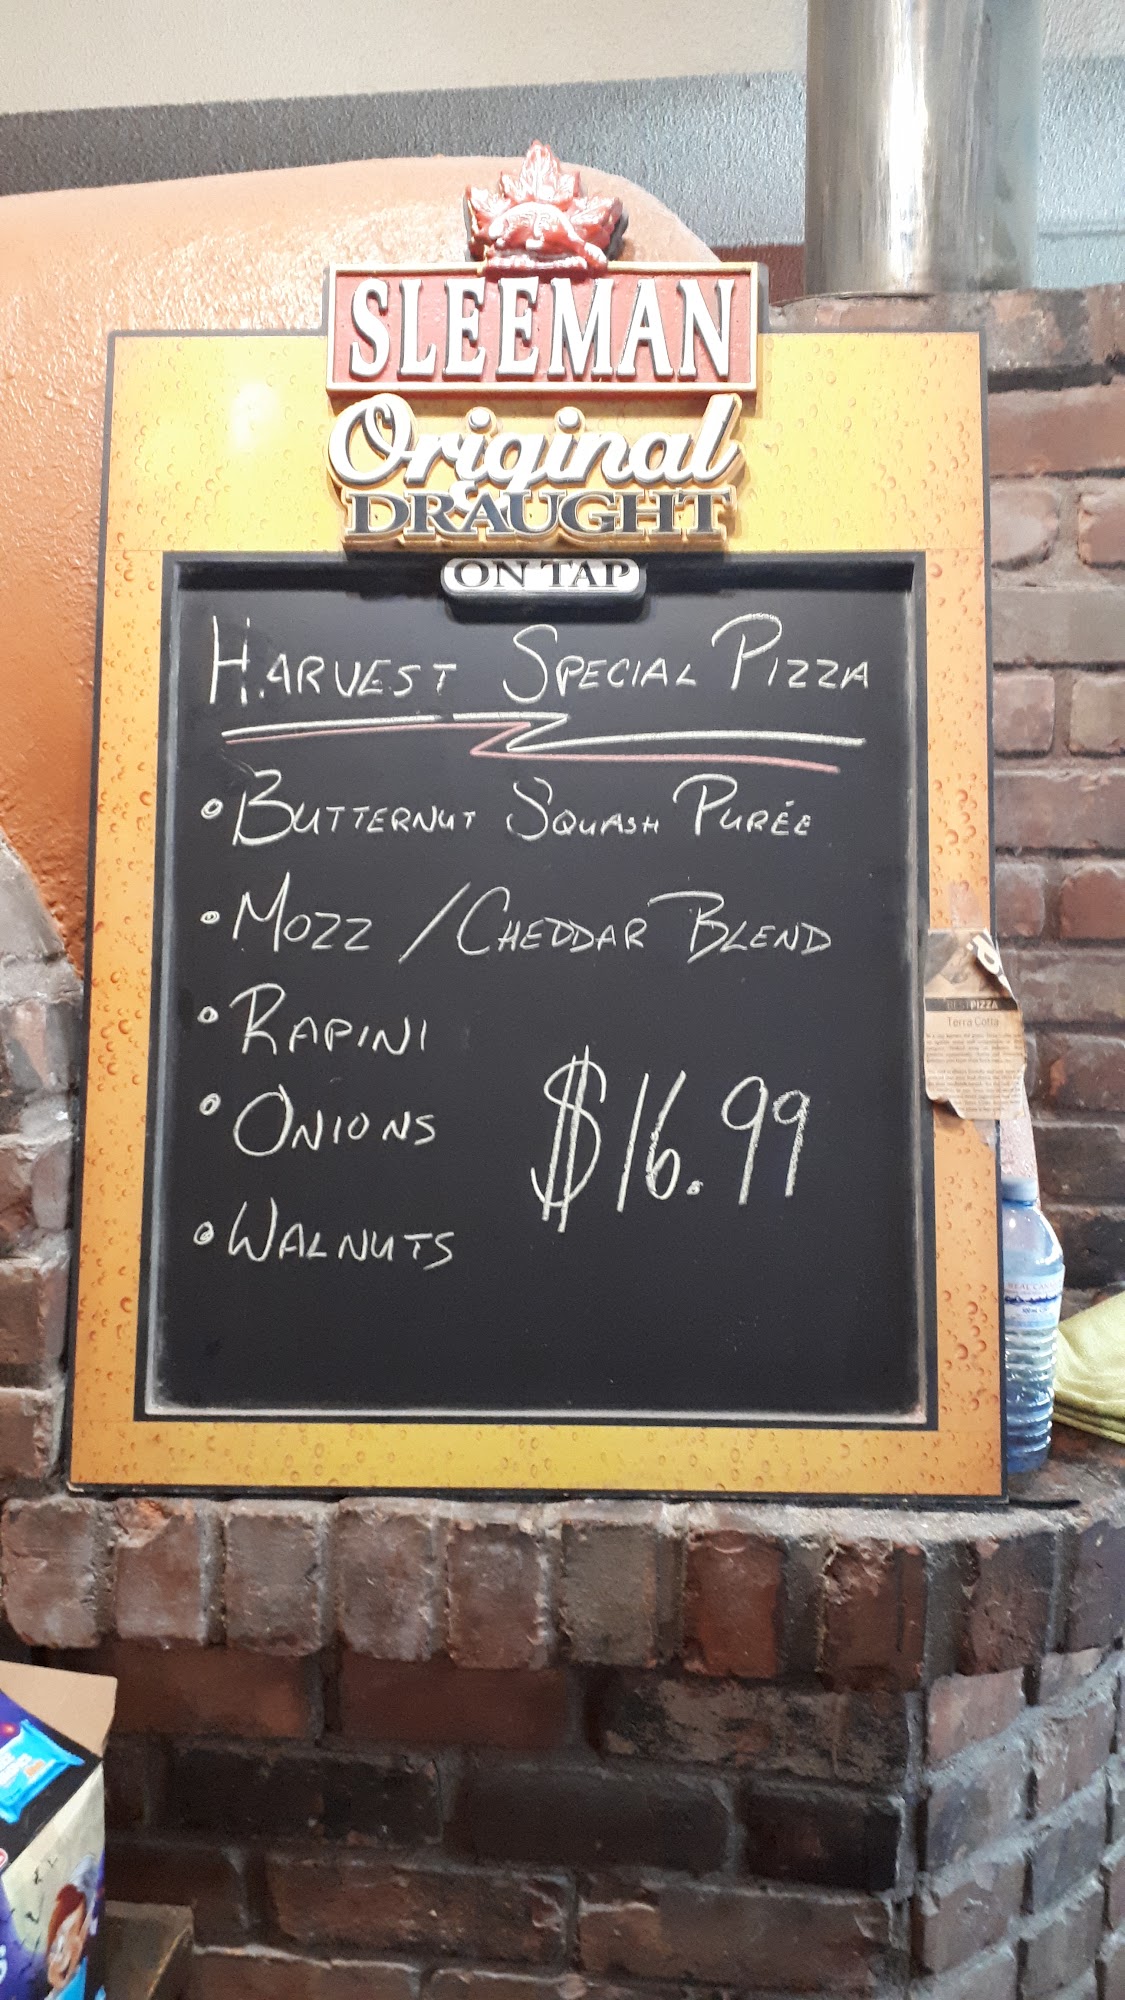 SLEEMAN
Original
DRAUGHT
ON TAP
HARVEST SPECIAL PIZZA
• BUTTERNUT SQUASH PURÉE
• MOZZ / CHEDDAR BLEND
• RAPINI
• ONIONS
$16.99
• WALNUTS
BEST PIZZA
Terra Cotta